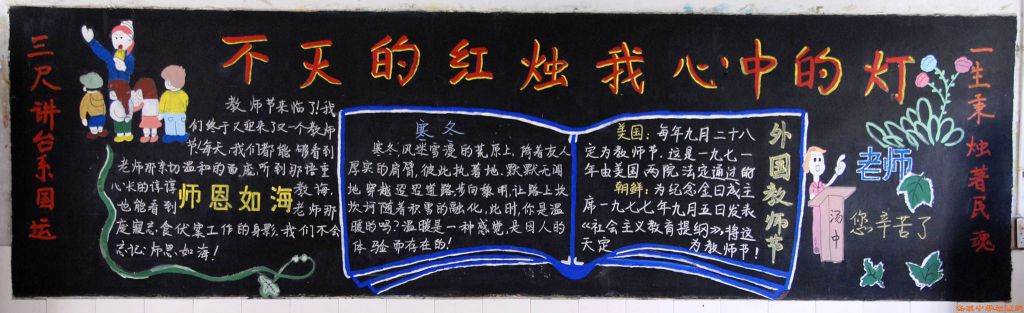 不灭的红烛我心中的灯
三尺讲台系国运
教师节来临了!我
们终于又迎来了又一个教师
节!每天,我们都能够看到
老师那亲切温和的面庞,听到那语重
心长的谆谆教诲,
也能看到老师那
师恩如海
废寝忘食伏案工作的身影,我们不会
忘记师恩如海!
寒冬
寒冬风迷雪漫的荒原上,随着友人
厚实的肩臂,彼此执着地,默默无闻
地穿越迢迢道路步向黎明,让路上坎
坎坷随着积雪的融化,此时,你是温
暖的吗?温暖是一种感觉,是因人的
体验而存在的!
外国教师节
美国:每年九月二十八
定为教师节.这是一九七一
年由美国两院法定通过的
朝鲜:为纪念金日成主
席一九七七年九月五日发表
《社会主义教育提纲》,将这
天定为教师节!
老师
您辛苦了
汤中
一生秉烛著民魂